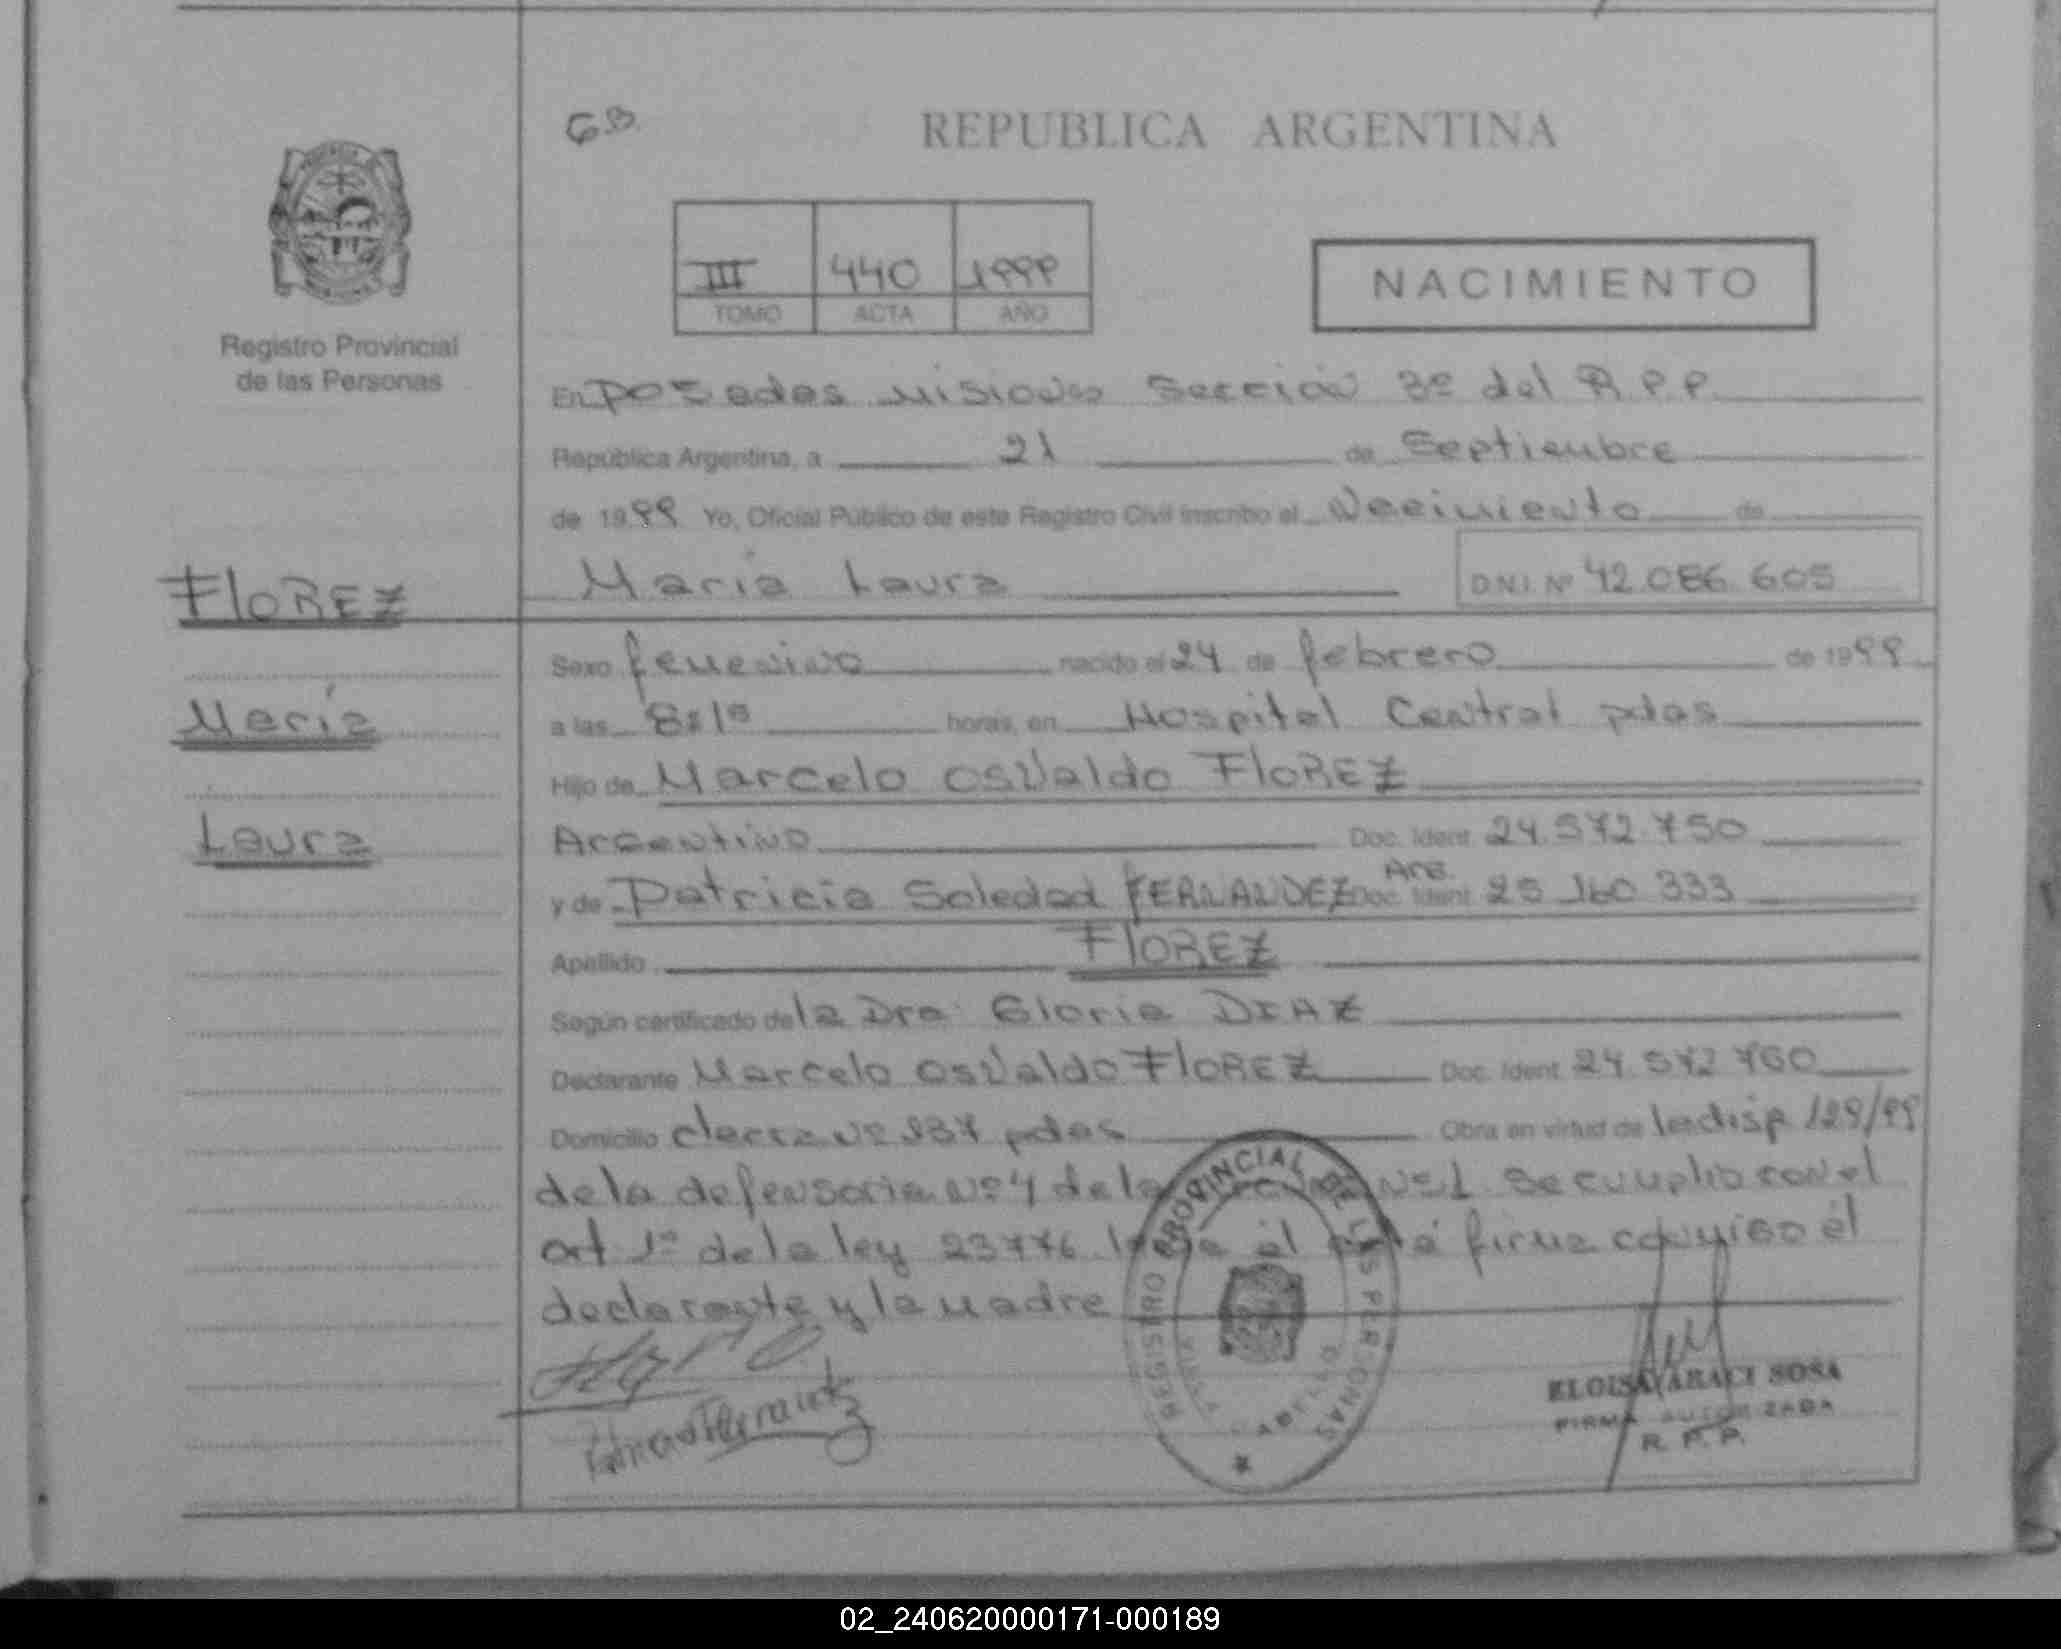 G.B.
REPUBLICA ARGENTINA
III 440 1999
TOMO ACTA AÑO
NACIMIENTO
Registro Provincial
de las Personas
En Posadas Misiones Sección 3º del R.P.P.
República Argentina, a 21 de Septiembre
de 1999 Yo, Oficial Público de este Registro Civil inscribo el Nacimiento de
María Laura D.N.I. Nº 42.086.605
FLOREZ
María
Laura
Sexo femenino nacido el 24 de febrero de 1999
a las 8:10 horas, en Hospital Central pdas
Hijo de Marcelo Osvaldo FLOREZ
Argentino Doc. Ident. 24.572.750
y de Patricia Soledad FERNANDEZ Arg. Doc. Ident. 25.160.333
Apellido FLOREZ
Según certificado de la Dra. Gloria DIAZ
Declarante Marcelo Osvaldo FLOREZ Doc. Ident. 24.572.760
Domicilio Nº 937 pdas Obra en virtud de la disp 129/99
de la defensoria Nº 4 de la Nº 1 Se cumplio con el
art 1º de la ley 23776 el firma conmigo él
declarante y la madre
REGISTRO PROVINCIAL DE LAS PERSONAS
VILLA CABELLO
ELOISA ARACI SOSA
FIRMA AUTORIZADA
R. P. P.
02_240620000171-000189